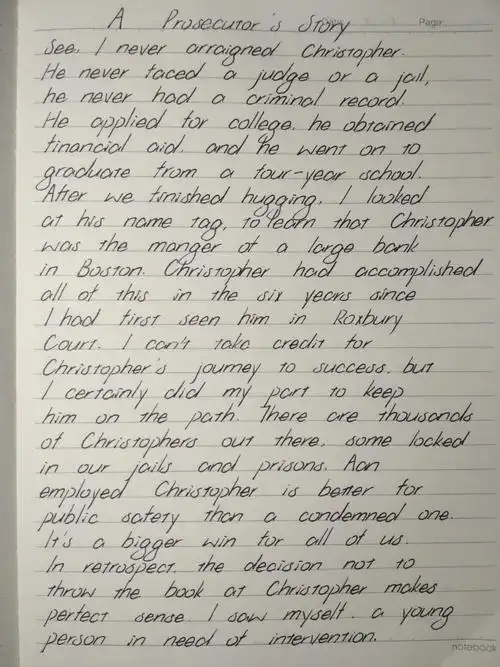 A Prosecutor's Story
Page
See, I never arraigned Christopher.
He never faced a judge or a jail,
he never had a criminal record.
He applied for college, he obtained
financial aid, and he went on to
graduate from a four-year school.
After we finished hugging, I looked
at his name tag, to learn that Christopher
was the manger of a large bank
in Boston. Christopher had accomplished
all of this in the six years since
I had first seen him in Roxbury
Court. I can't take credit for
Christopher's journey to success, but
I certainly did my part to keep
him on the path. There are thousands
of Christophers out there, some locked
in our jails and prisons. Aan
employed Christopher is better for
public safety than a condemned one.
It's a bigger win for all of us.
In retrospect, the decision not to
throw the book at Christopher makes
perfect sense. I saw myself, a young
person in need of intervention.
notebook